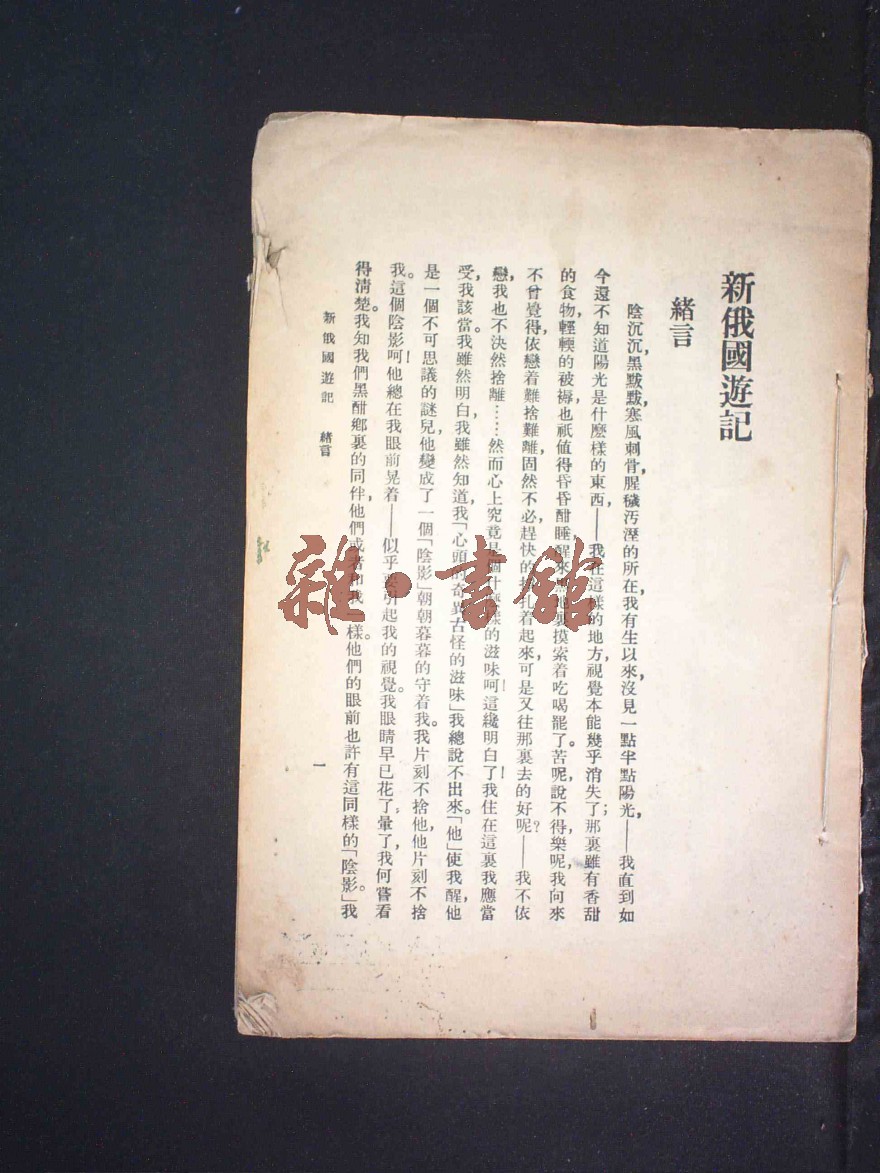 新俄國遊記
緒言
陰沉沉，黑默默，寒風刺骨，腥穢汚溼的所在，我有生以來，沒見一點半點陽光，——我直到如
今還不知道陽光是什麽樣的東西，——我在這樣的地方，視覺本能幾乎消失了；那裏雖有香甜
的食物，輕輭的被褥，也祇值得昏昏酣睡，醒來黑地裏摸索着吃喝罷了。苦呢，說不得，樂呢，我向來
不曾覺得，依戀着難捨難離，固然不必，趕快的掙扎着起來，可是又往那裏去的好呢？——我不依
戀，我也不決然捨離……然而心上究竟是個什麽樣的滋味呵！這纔明白了！我住在這裏我應當
受，我該當。我雖然明白，我雖然知道，我「心頭的奇異古怪的滋味」我總說不出來。「他」使我醒，他
是一個不可思議的謎兒，他變成了一個「陰影」朝朝暮暮的守着我。我片刻不捨他，他片刻不捨
我。這個陰影呵！他總在我眼前晃着——似乎要引起我的視覺。我眼睛早已花了，暈了，我何嘗看
得淸楚。我知我們黑酣鄉裏的同伴，他們或者和我一樣。他們的眼前也許有這同樣的「陰影」。我
新俄國遊記　緒言
一
雜·書館